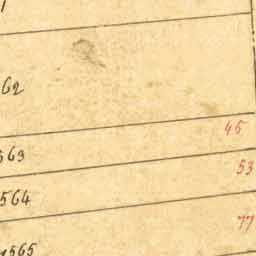 62
45
563
53
564
77
1565